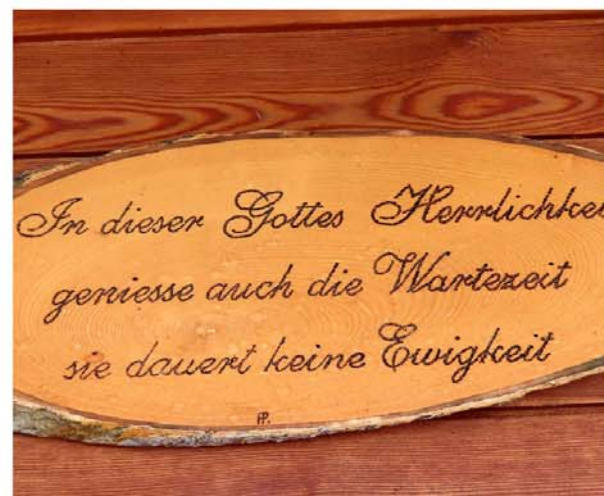 In dieser Gottes Herrlichkei
geniesse auch die Wartezeit
sie dauert keine Ewigkeit
HP.